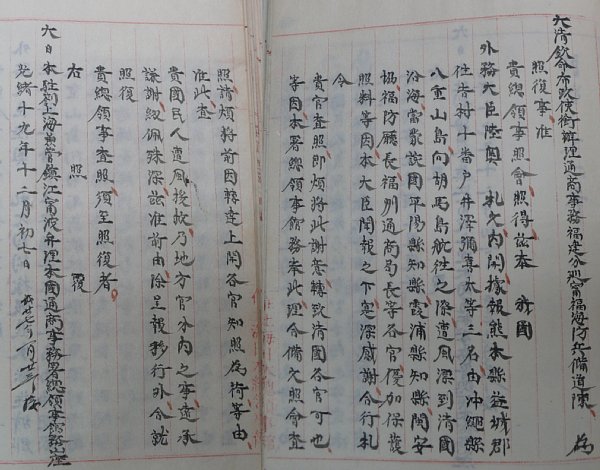 大清欽命布政使銜辦理通商事務福建分巡甯福海防兵備道陳 為
照復事准
貴總領事照會照得茲奉 我國
外務大臣陸奧 札文內開據報熊本縣益城郡
住吉村十番戶井澤彌喜太等三名由沖繩縣
八重山島向胡馬島航往之際遭風漂到清國
沿海當蒙該國平陽縣知縣霞浦縣知縣閩安
協福防廳長福州通商局長等各官優加保護
照料等因本大臣聞報之下寔深感謝合行札
令
貴官查照即煩將此謝意轉致清國各官可也
等因本署總領事館務奉此理合備文照會查
照請煩將前因轉達上開各官知照為荷等由
准此查
貴國民人遭風接救乃地方官分內之事遠承
謙謝紉佩殊深茲准前由除呈報移行外合就
照復
貴總領事查照須至照復者
右 照 復
大日本駐劄上海兼管鎮江甯波弁理本國通商事務署總領事館務山座
光緒十九年十二月初七日
廿七年一月廿三日